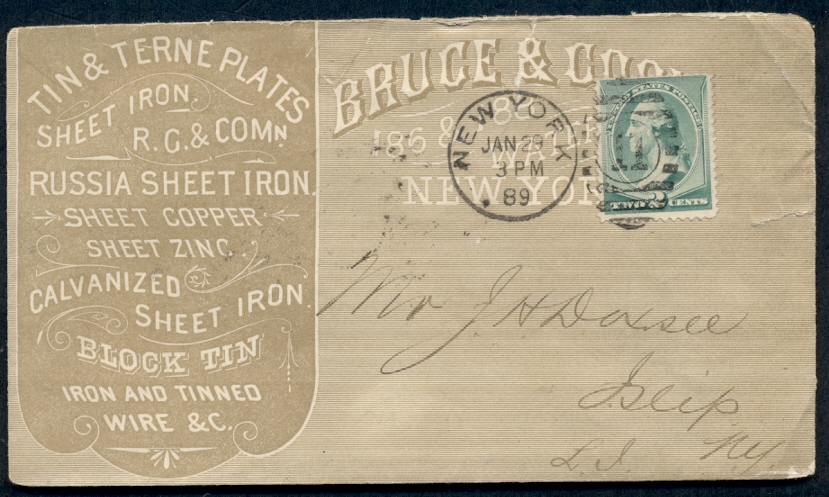 TIN & TERNE PLATES
SHEET IRON,
R.G. & COMN
RUSSIA SHEET IRON.
SHEET COPPER
SHEET ZINC,
CALVANIZED
SHEET IRON.
BLOCK TIN
IRON AND TINNED
WIRE &C.
BRUCE & COOK
186 & 188
NEW YORK
NEW YORK
JAN 29
3 PM
89
UNITED STATES POSTAGE
TWO 2 CENTS
Mr J H Doxsee
Islip
L. I. NY